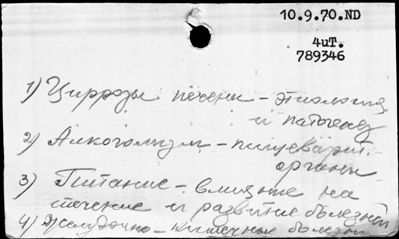 10.9.70.ND
4иТ.
789346
1) Циррозы печени - этиология
и патогенез
2) Алкоголизм - пищеварит.
органы
3) Питание - влияние на
течение и развитие болезней
4) Желудочно-кишечные болезни